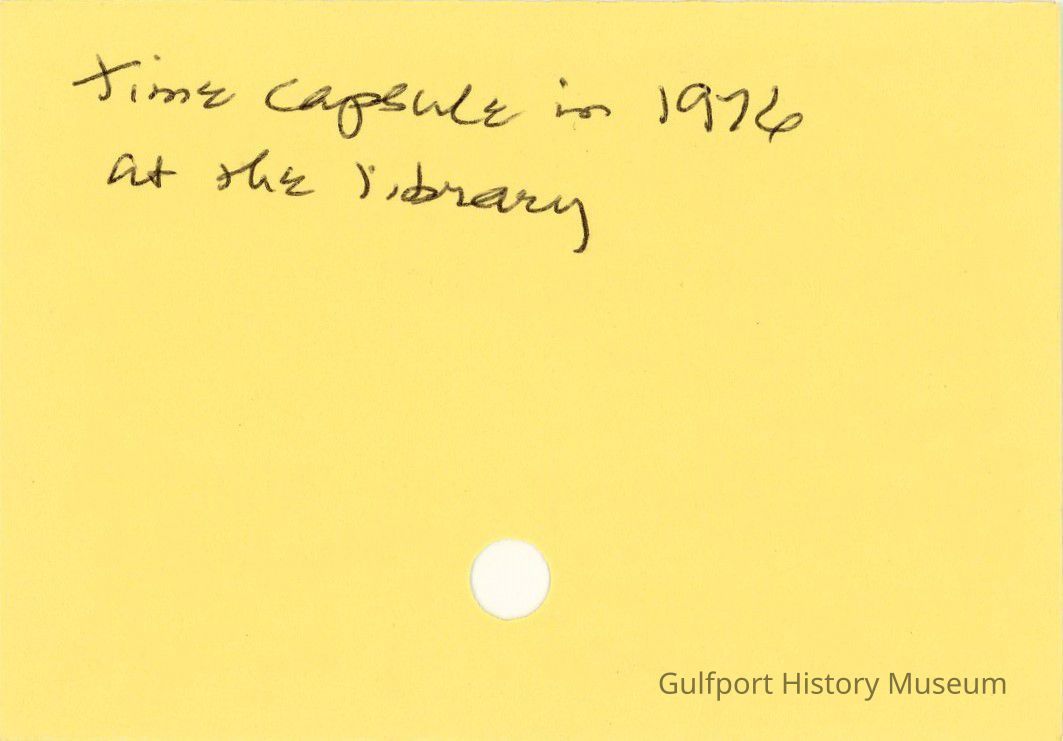 time capsule in 1976
at the library
Gulfport History Museum